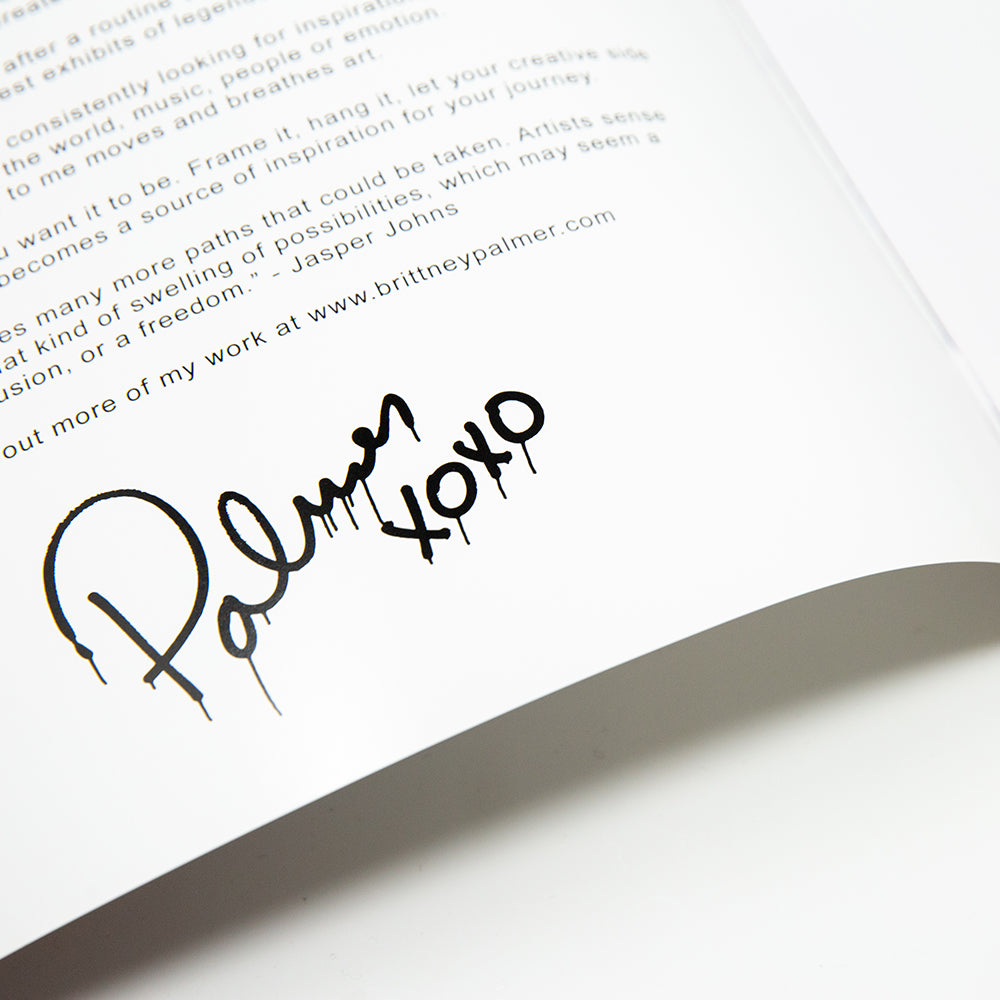 after a routine
est exhibits of legend
consistently looking for inspiration
the world, music, people or emotion.
to me moves and breathes art.
u want it to be. Frame it, hang it, let your creative side
becomes a source of inspiration for your journey.
es many more paths that could be taken. Artists sense
at kind of swelling of possibilities, which may seem a
usion, or a freedom.” - Jasper Johns
out more of my work at www.brittneypalmer.com
Palmer
XOXO